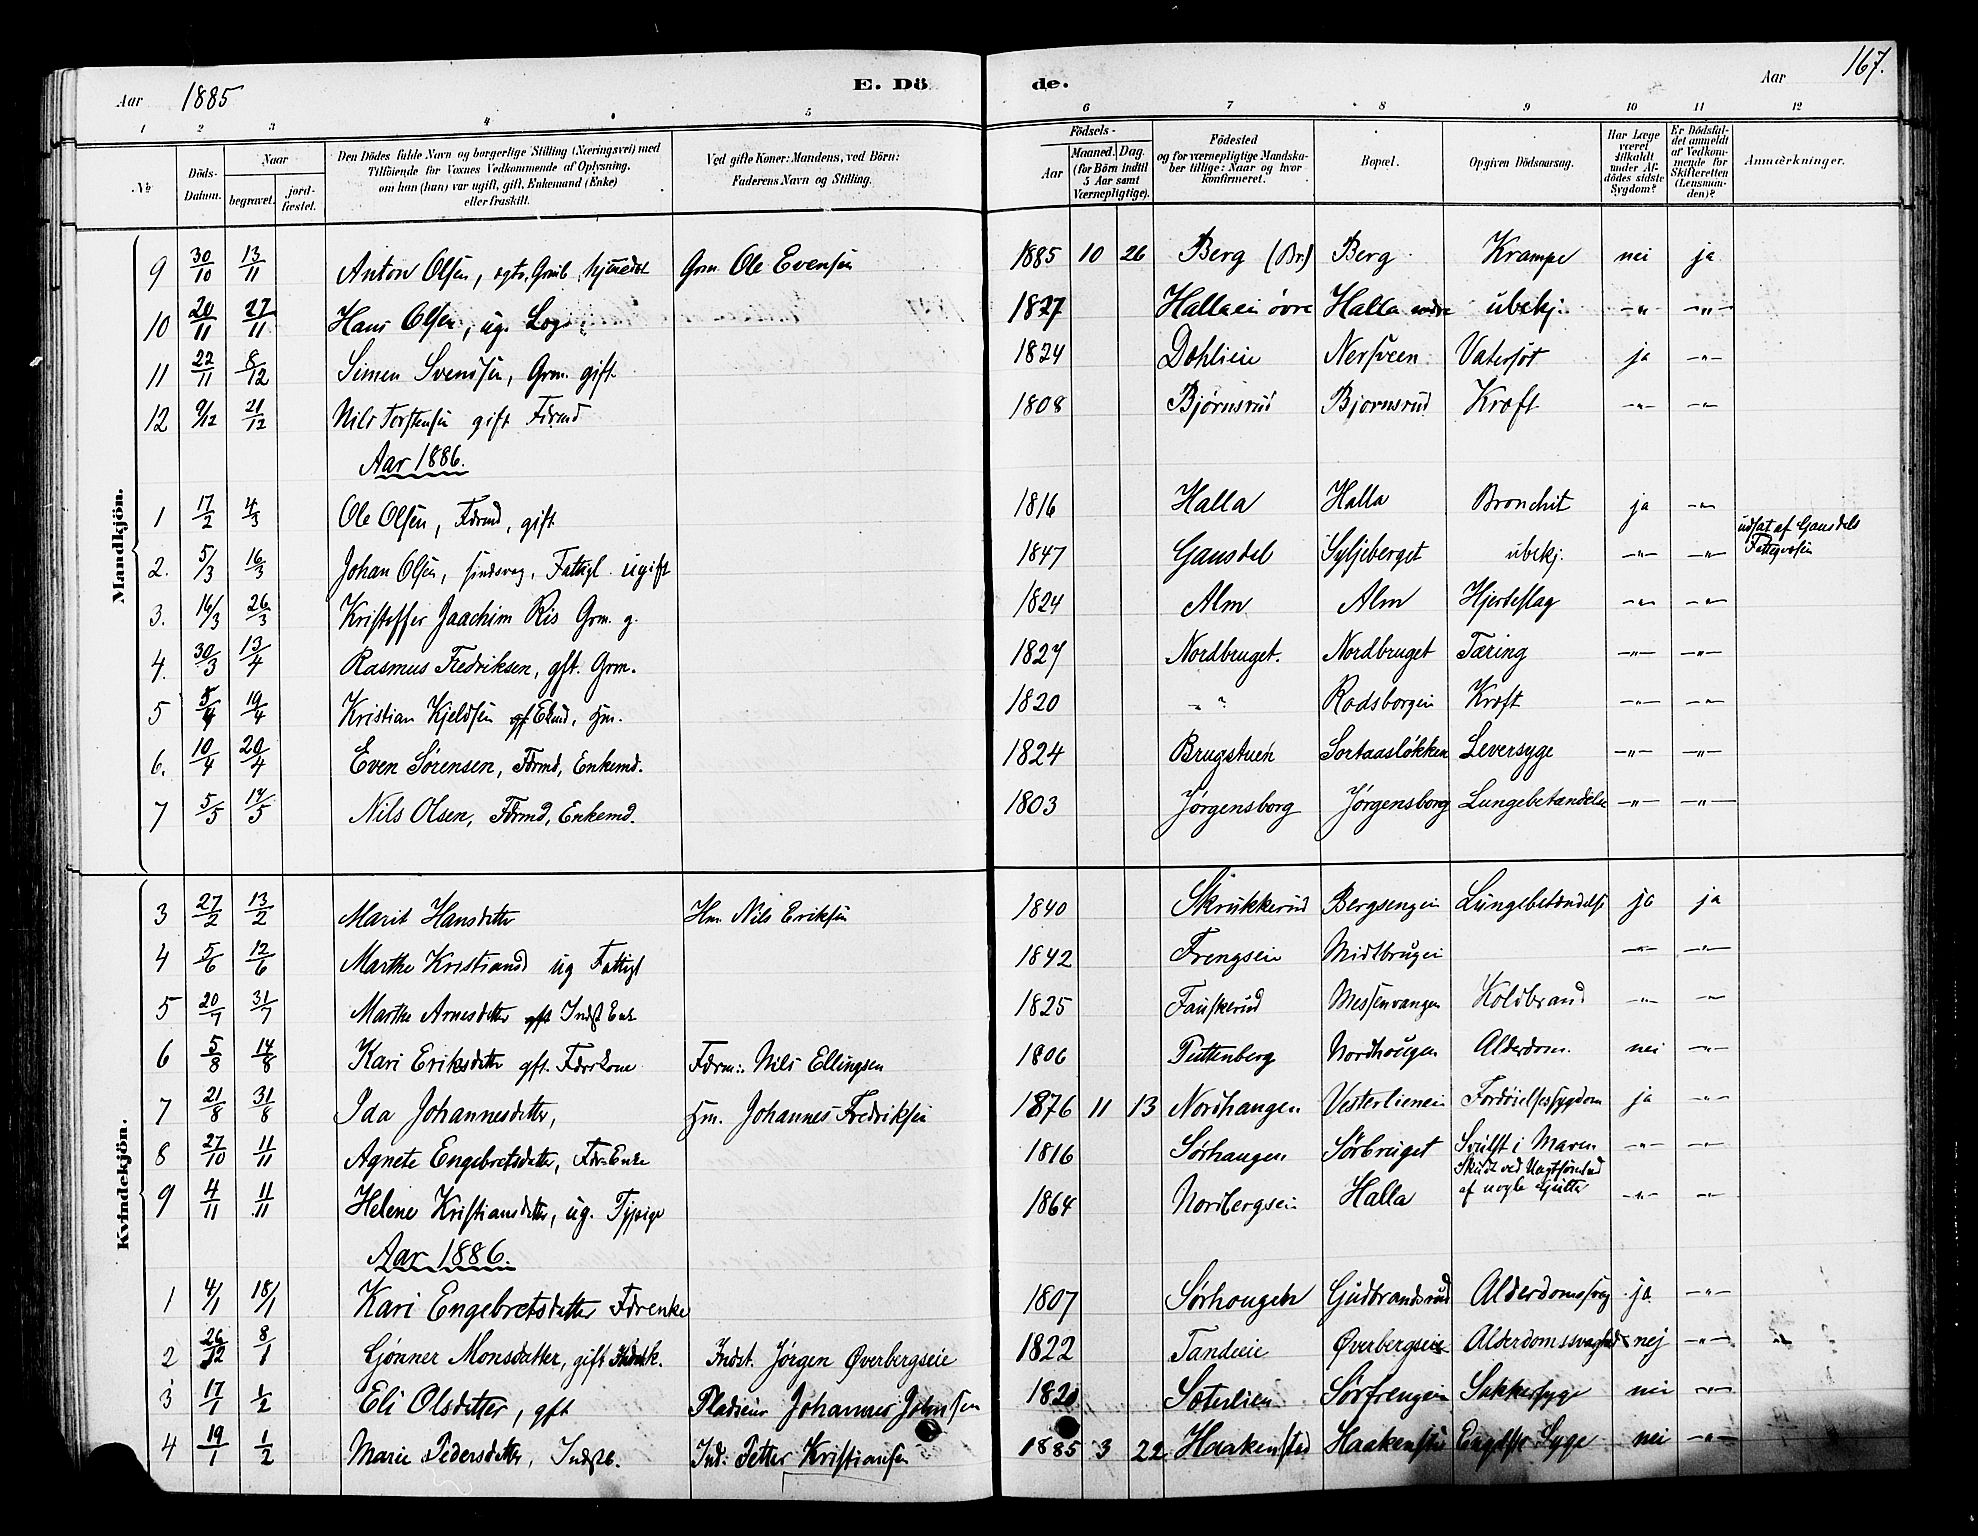 Aar 1885 E. Dö de. Aar 167.
1 2 3 4 5 6 7 8 9 10 11 12
№ Döds-Datum. Naar begravet. jord-fæstet. Den Dödes fulde Navn og borgerlige Stilling (Næringsvei) med Tilföiende for Voxnes Vedkommende af Oplysning, om hun (han) var ugift, gift, Enkemand (Enke) eller fraskilt. Ved gifte Koner: Mandens, ved Börn: Faderens Navn og Stilling. Födsels- Aar Maaned. Dag. (for Börn indtil 5 Aar samt Værnepligtige). Födested og for værnepligtige Mandska-ber tillige: Naar og hvor konfirmeret. Bopæl. Opgiven Dödsaarsag. Har Læge været tilkaldt under Af-dödes sidste Sygdom? Er Dödsfal-det anmeldt af Vedkom-mende for Skifteretten (Lensman-den)? Anmærkninger.
Mandkjön.
9 30/10 13/11 Anton Olsen, Grm Ole Evensen 1885 10 26 Berg (Br.) Berg Krampe nei ja
10 20/11 27/11 Hans Olsen, ug. Logs. 1827 Hallaeie övre Halla ubekj. -"- -"-
11 22/11 8/12 Simen Svendsen, Grm. gift 1824 Dahlieie Nersveen Vatersot ja -"-
12 9/12 21/12 Nils Torstensen gift Fdrmd 1808 Bjørnsrud Bjornsrud Kræft -"- -"-
Aar 1886.
1 17/2 4/3 Ole Olsen, Fdrmd, gift 1816 Halla Halla Bronchit ja -"-
2. 5/3 16/3 Johan Olsen, sindsvag, Fattigl. ugift 1847 Gausdal Syljeberget ubekj. -"- -"- udsat af Gausdals Fattigvæsen
3. 16/3 26/3 Kristoffer Jaachim Ris Grm. g. 1824 Alm Alm Hjerteslag -"- -"-
4. 30/3 13/4 Rasmus Fredriksen, gft. Grm. 1827 Nordbruget. Nordbruget Tæring -"- -"-
5 5/4 19/4 Kristian Kjeldsen Hm. 1820 " " Rodsborgen Kræft -"- -"-
6. 10/4 20/4 Even Sørensen, Fdrmd, Enkemd. 1824 Brugstuen Sortaasløkken Leversyge -"- -"-
7 5/5 14/5 Nils Olsen, Fdrmd, Enkemd. 1803 Jørgensborg Jørgensborg Lungebetændelse -"- -"-
Kvindekjön.
3 27/2 13/2 Marit Hansdatter Hm. Nils Eriksen 1840 Skrukkerud Bergsengen Lungebetændelse ja ja
4 5/6 12/6 Marthe Kristiansd ug Fattigl 1842 Frengseie Midtbrugen -"- -"-
5 20/7 31/7 Marthe Arnesdatter gft Indst Enk 1825 Fauskerud Messenvangen Koldbrand -"- -"-
6 5/8 14/8 Kari Eriksdatter gft. Fdrkone Fdrm: Nils Ellingsen 1806 Puttenberg Nordhougen Alderdom. nei -"-
7 21/8 31/8 Ida Johannesdatter, Hm. Johannes Fredriksen 1876 11 13 Nordhaugen Vesterlieneie Fordøielsessygdom ja -"-
8 27/10 11/11 Agnete Engebretsdatter, Fdr=Enke 1816 Sørhaugen Sörbruget Svulst i Maven -"- -"-
9 4/11 11/11 Helene Kristiansdatter, ug. Tjpige 1864 Nordbergseie Halla Skudt ved Uagtsomhed af nogle Gutter -"- -"-
Aar 1886.
1 4/1 18/1 Kari Engebretsdatter Fdrenke 1807 Sørhougen Gudbrandsrud Alderdomssvag. ja -"-
2 26/12 8/1 Gjønner Monsdatter, gift Indst. Jørgen Øverbergseie 1822 Tandeie Øverbergseie Alderdomssvaghed nej -"-
3 17/1 1/2 Eli Olsdatter, gft Pladseier Johannes Johnsen 1820 Sæterlien Sørfrengen Sukkersyge nei -"-
4 19/1 1/2 Marie Pedersdatter, Indstb. Ind: Petter Kristiansen 1885 3 22 Haakenstad Haakenstad Engelsk Syge nei -"-